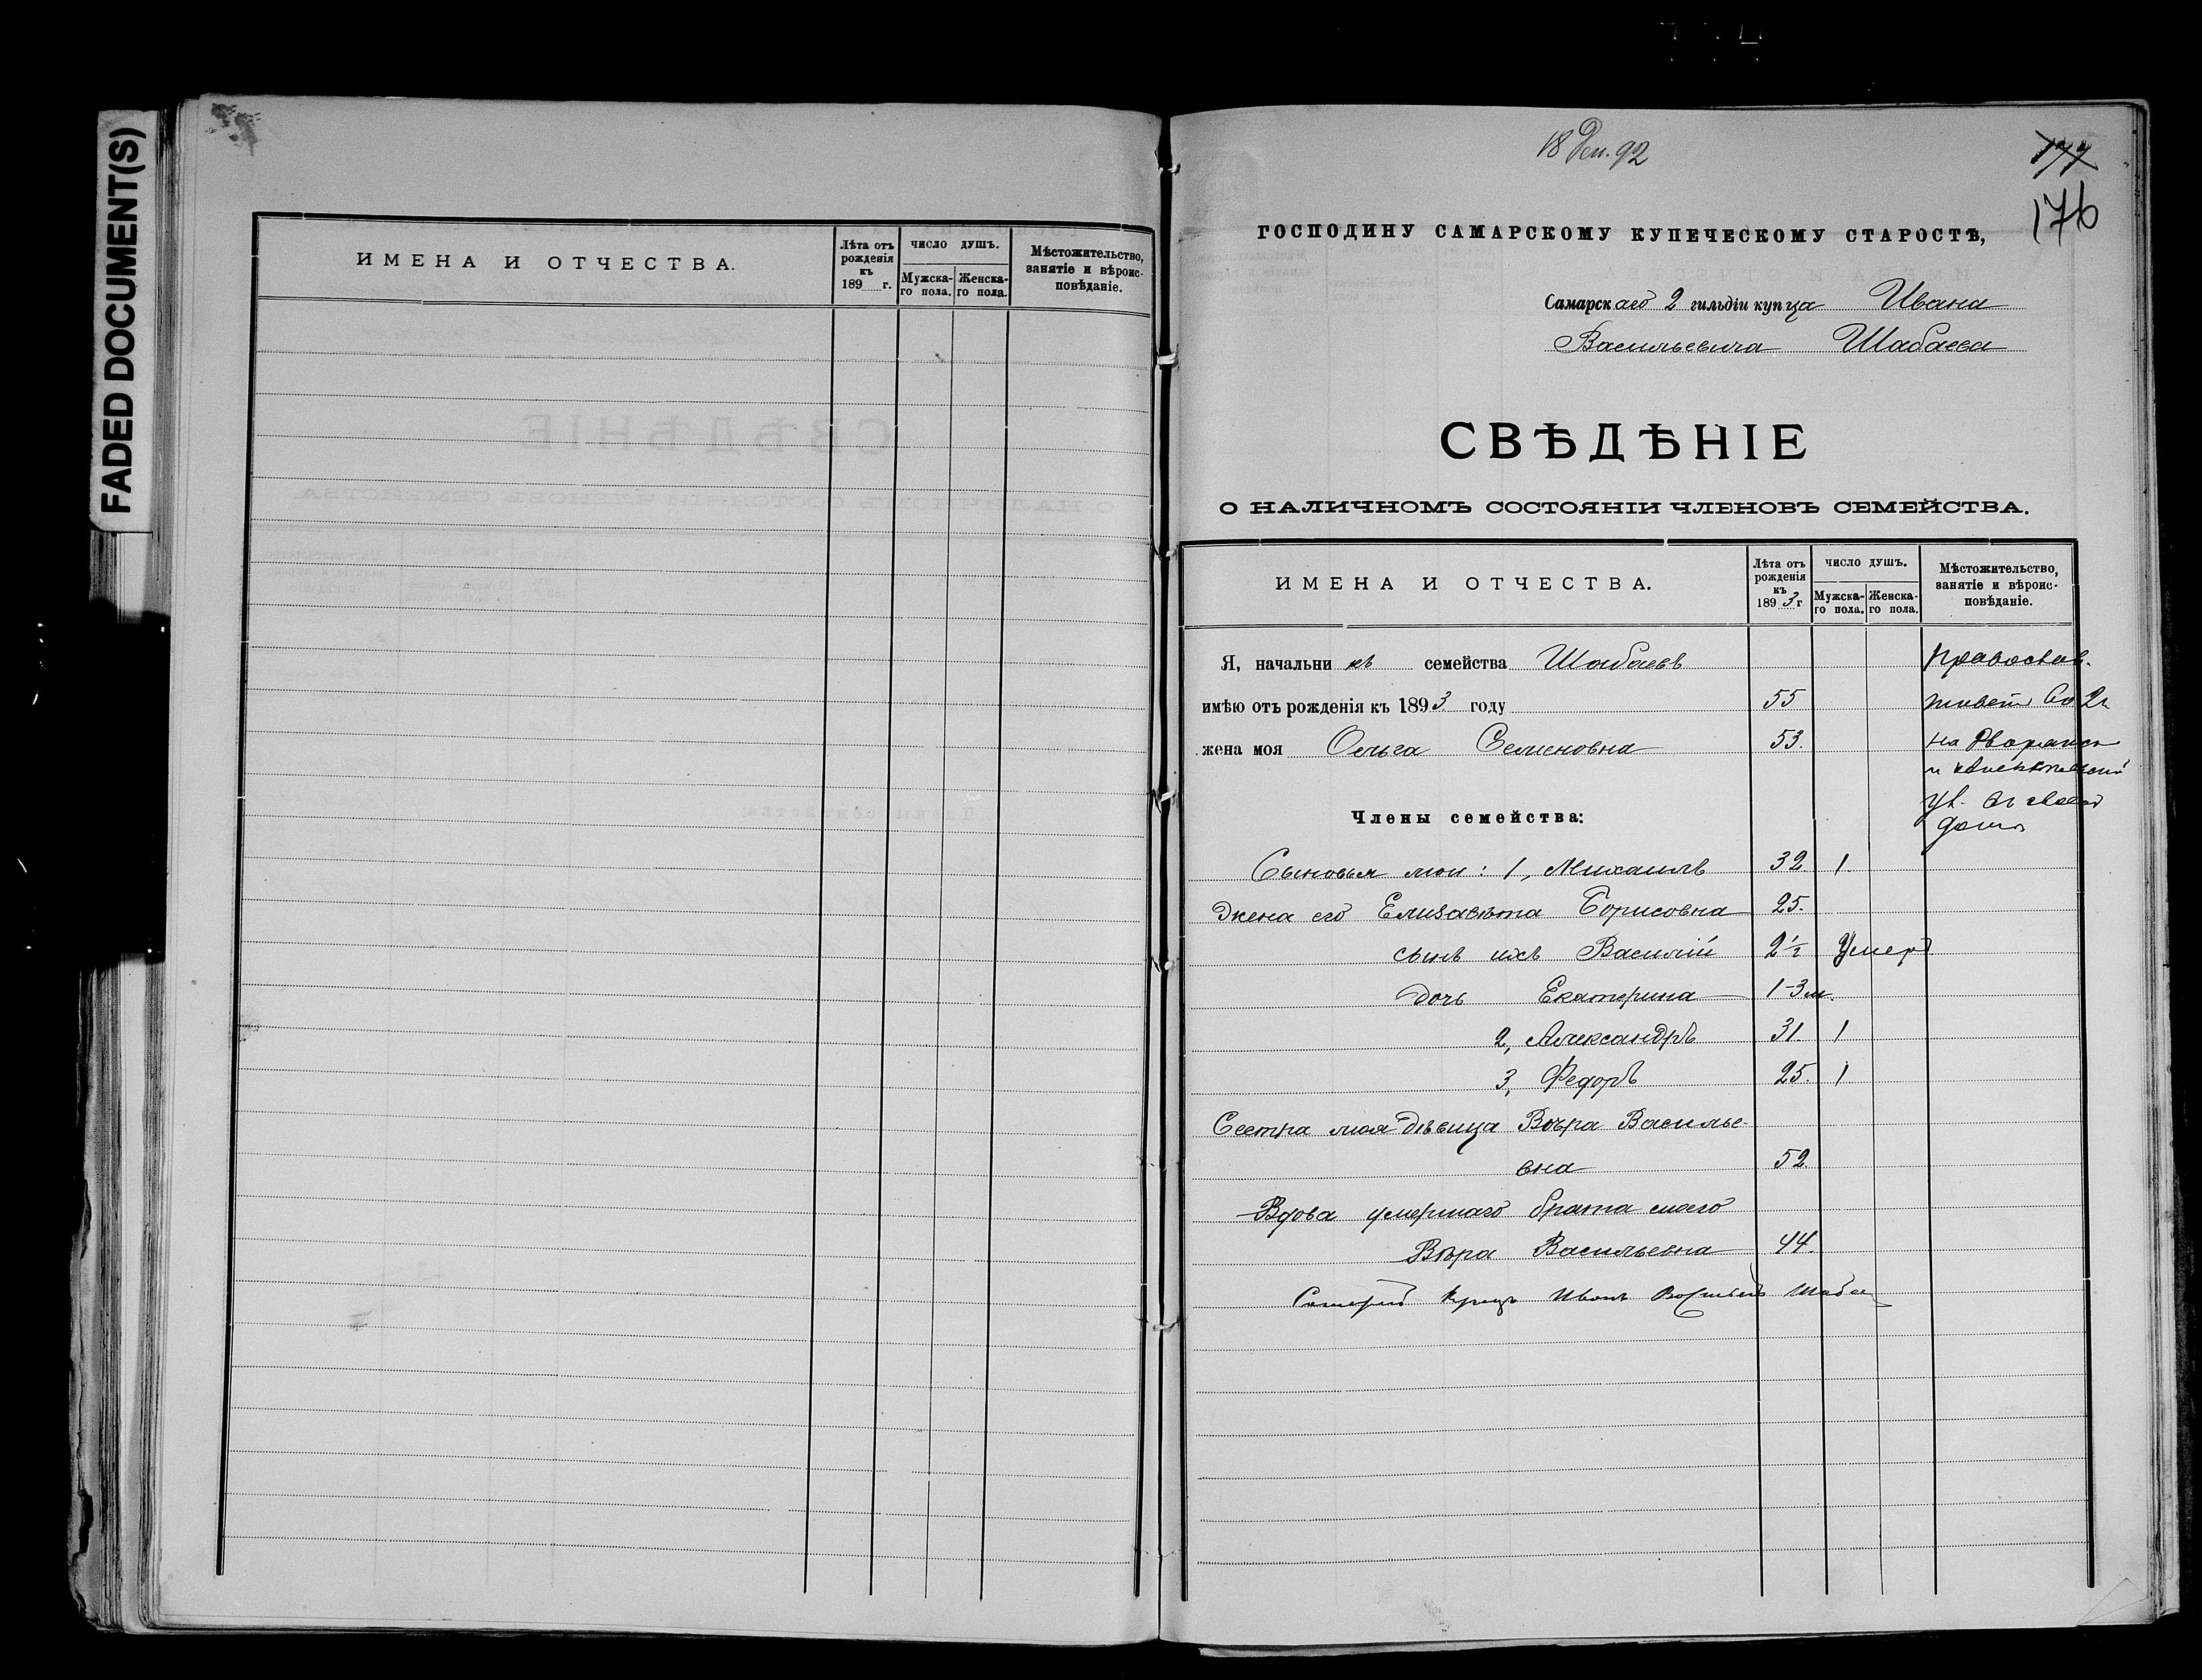 FADED DOCUMENT(S)
ИМЕНА И ОТЧЕСТВА.
Лѣта отъ рожденія къ 189 г.
ЧИСЛО ДУШЪ.
Мужска-го пола.
Женска-го пола.
Мѣстожительство, занятіе и вѣроис-повѣданіе.
18 Дек. 92
177
176
ГОСПОДИНУ САМАРСКОМУ КУПЕЧЕСКОМУ СТАРОСТѢ,
Самарскаго 2 гильдіи купца Ивана
Васильевича Шабаева
СВѢДѢНІЕ
О НАЛИЧНОМЪ СОСТОЯНІИ ЧЛЕНОВЪ СЕМЕЙСТВА.
ИМЕНА И ОТЧЕСТВА.
Лѣта отъ рожденія къ 1893 г
ЧИСЛО ДУШЪ.
Мужска-го пола.
Женска-го пола.
Мѣстожительство, занятіе и вѣроис-повѣданіе.
Я, начальникъ семейства Шабаевъ Православ.
имѣю отъ рожденія къ 1893 году 55 живетъ во 2ч
жена моя Ольга Семеновна 53. на Дворянск
и
въ своем
доме
Члены семейства:
Сыновья мои: 1, Михаилъ 32 1.
Жена его Елизавѣта Борисовна 25.
сынъ ихъ Василій 2½ Умеръ
дочь Екатерина 1-3 м.
2, Александръ 31. 1
3, Федоръ 25. 1
Сестра моя дѣвица Вѣра Василье-
вна 52
Вдова умершаго брата моего
Вѣра Васильевна 44.
Самарский Купец Иванъ Васильев Шабаев